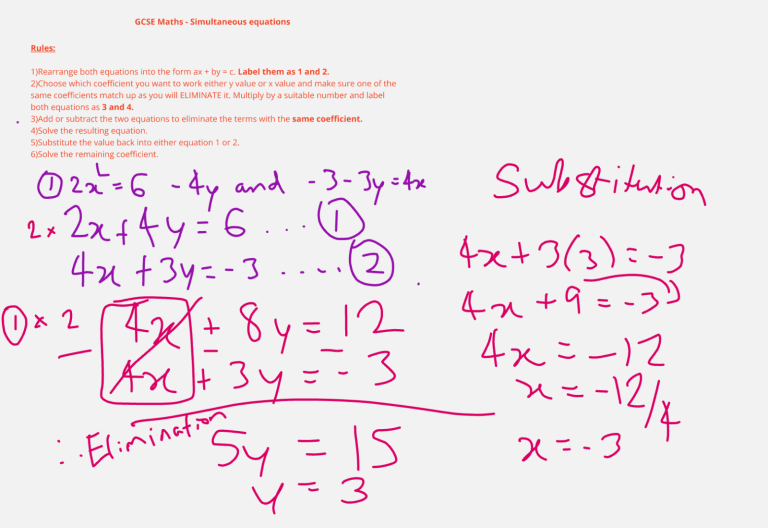 GCSE Maths - Simultaneous equations
Rules:
1)Rearrange both equations into the form ax + by = c. Label them as 1 and 2.
2)Choose which coefficient you want to work either y value or x value and make sure one of the
same coefficients match up as you will ELIMINATE it. Multiply by a suitable number and label
both equations as 3 and 4.
3)Add or subtract the two equations to eliminate the terms with the same coefficient.
4)Solve the resulting equation.
5)Substitute the value back into either equation 1 or 2.
6)Solve the remaining coefficient.
① 2x = 6 - 4y and -3 - 3y = 4x
2 × 2x + 4y = 6 ... ①
4x + 3y = -3 ..... ②
① × 2 4x + 8y = 12
- 4x + 3y = -3
∴ Elimination 5y = 15
y = 3
Substitution
4x + 3(3) = -3
4x + 9 = -3
4x = -12
x = -12/4
x = -3